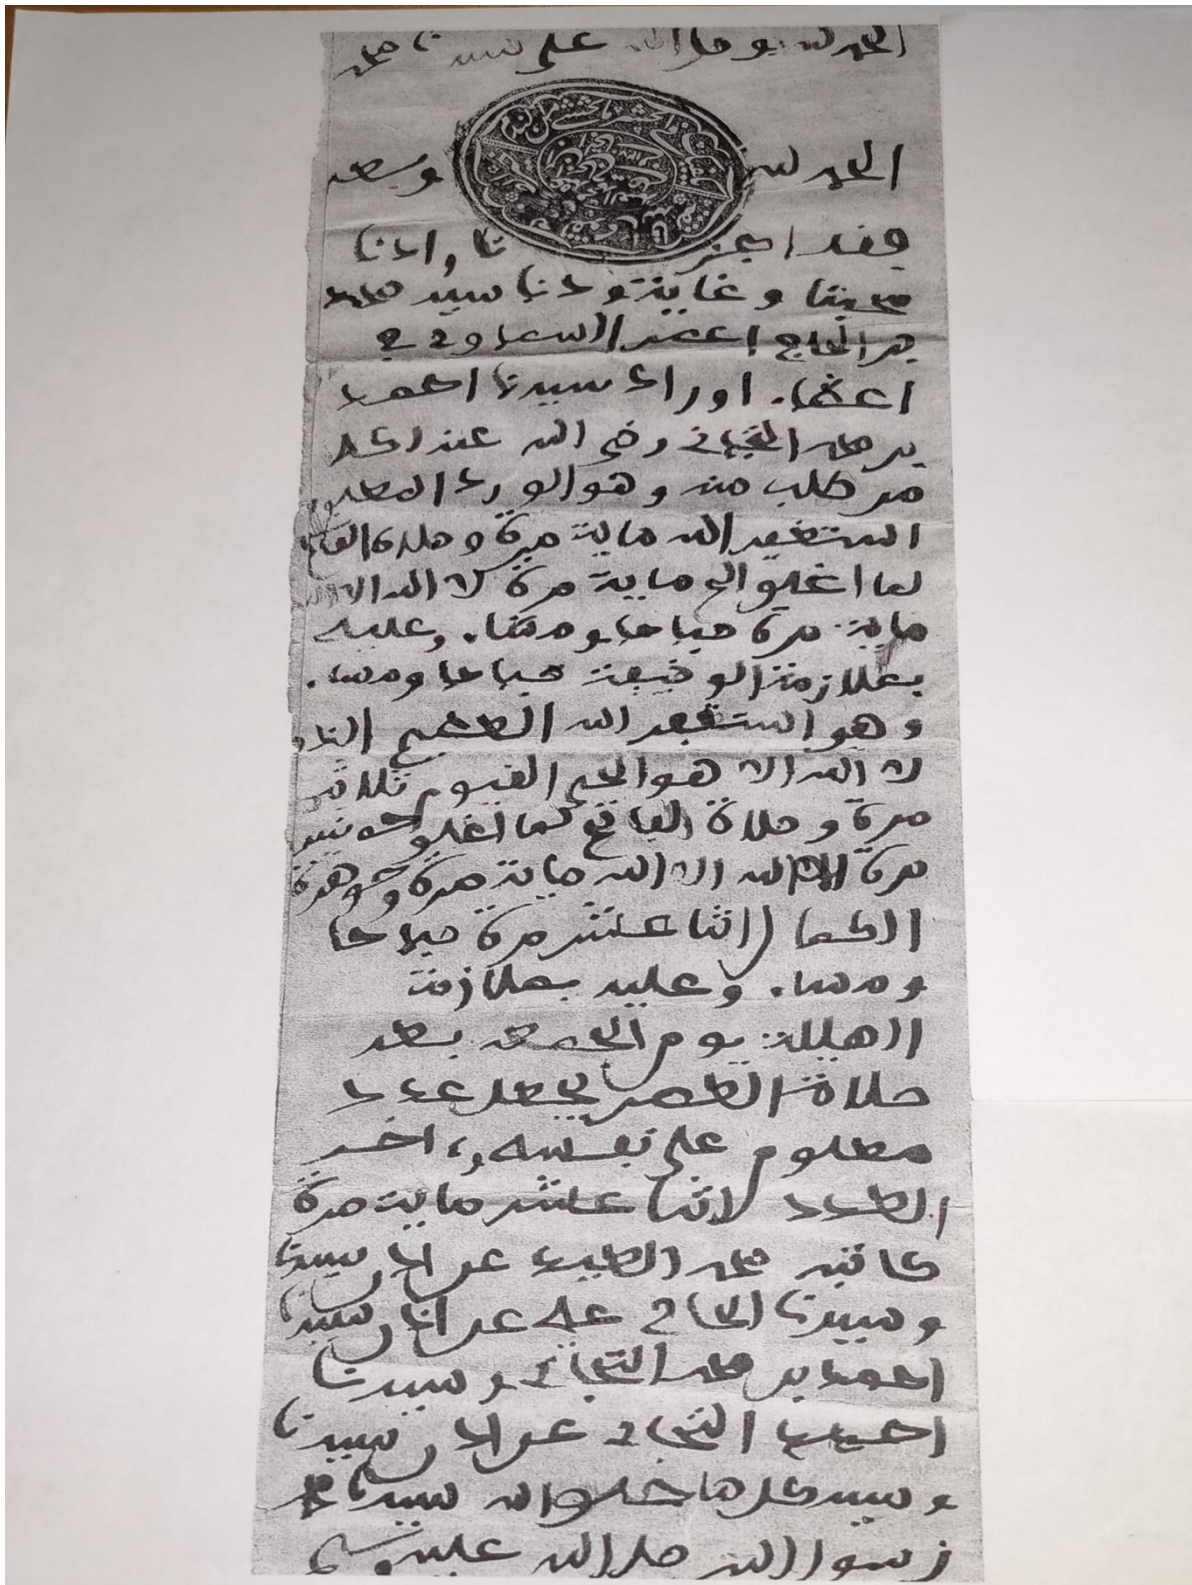 الحمد لله وصلى الله على سيدنا محمد
الحمد لله وبعد
فقد اجزنا واذنا
محبنا وغاية ودنا سيد محمد
بن الحاج اعمر السعاوي في
اعطاء اوراد سيدنا احمد
بن محمد التجاني رضي الله عنه لكل
من طلب منه وهو الورد المعلوم
استغفر الله ماية مرة وصلاة الفاتح
لما اغلق الخ ماية مرة لا اله الا الله
ماية مرة صباحا ومساء وعليه
بملازمة الوظيفة صباحا ومساء
وهو استغفر الله العظيم الذي
لا اله الا هو الحي القيوم ثلاثين
مرة وصلاة الفاتح لما اغلق خمسين
مرة لا اله الا الله ماية مرة وجوهرة
الكمال اثنا عشر مرة صباحا
ومساء وعليه بملازمة
الهيللة يوم الجمعة بعد
صلاة العصر يجعل عدد
معلوم على نفسه واخر
العدد اثنا عشر ماية مرة
كاتبه محمد الطيب عن اذن سيدنا
وسيدنا الحاج علي عن اذن سيدنا
احمد بن محمد التجاني وسيدنا
احمد التجاني عن اذن سيدنا
وسيد كل ما خلق الله سيدنا محمد
رسول الله صلى الله عليه وسلم